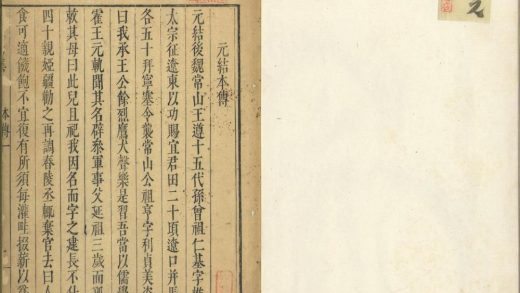 元結本傳
元結後魏常山王遵十五代孫曾祖仁基字
太宗征遼東以功賜宜君田二十頃遼口并馬
各五十拜寧塞令襲常山公祖亨字利貞美姿
曰我承王公餘烈鷹犬聲樂是習吾當以儒學
霍王元軌聞其名辟參軍事父延祖三歲而
敕其母曰此兒且祀我因名而字之逮長不仕
四十親婭彊勸之再調舂陵丞輒棄官去曰人
食可適饑飽不宜復有所須每灌畦掇薪以為
本傳 一